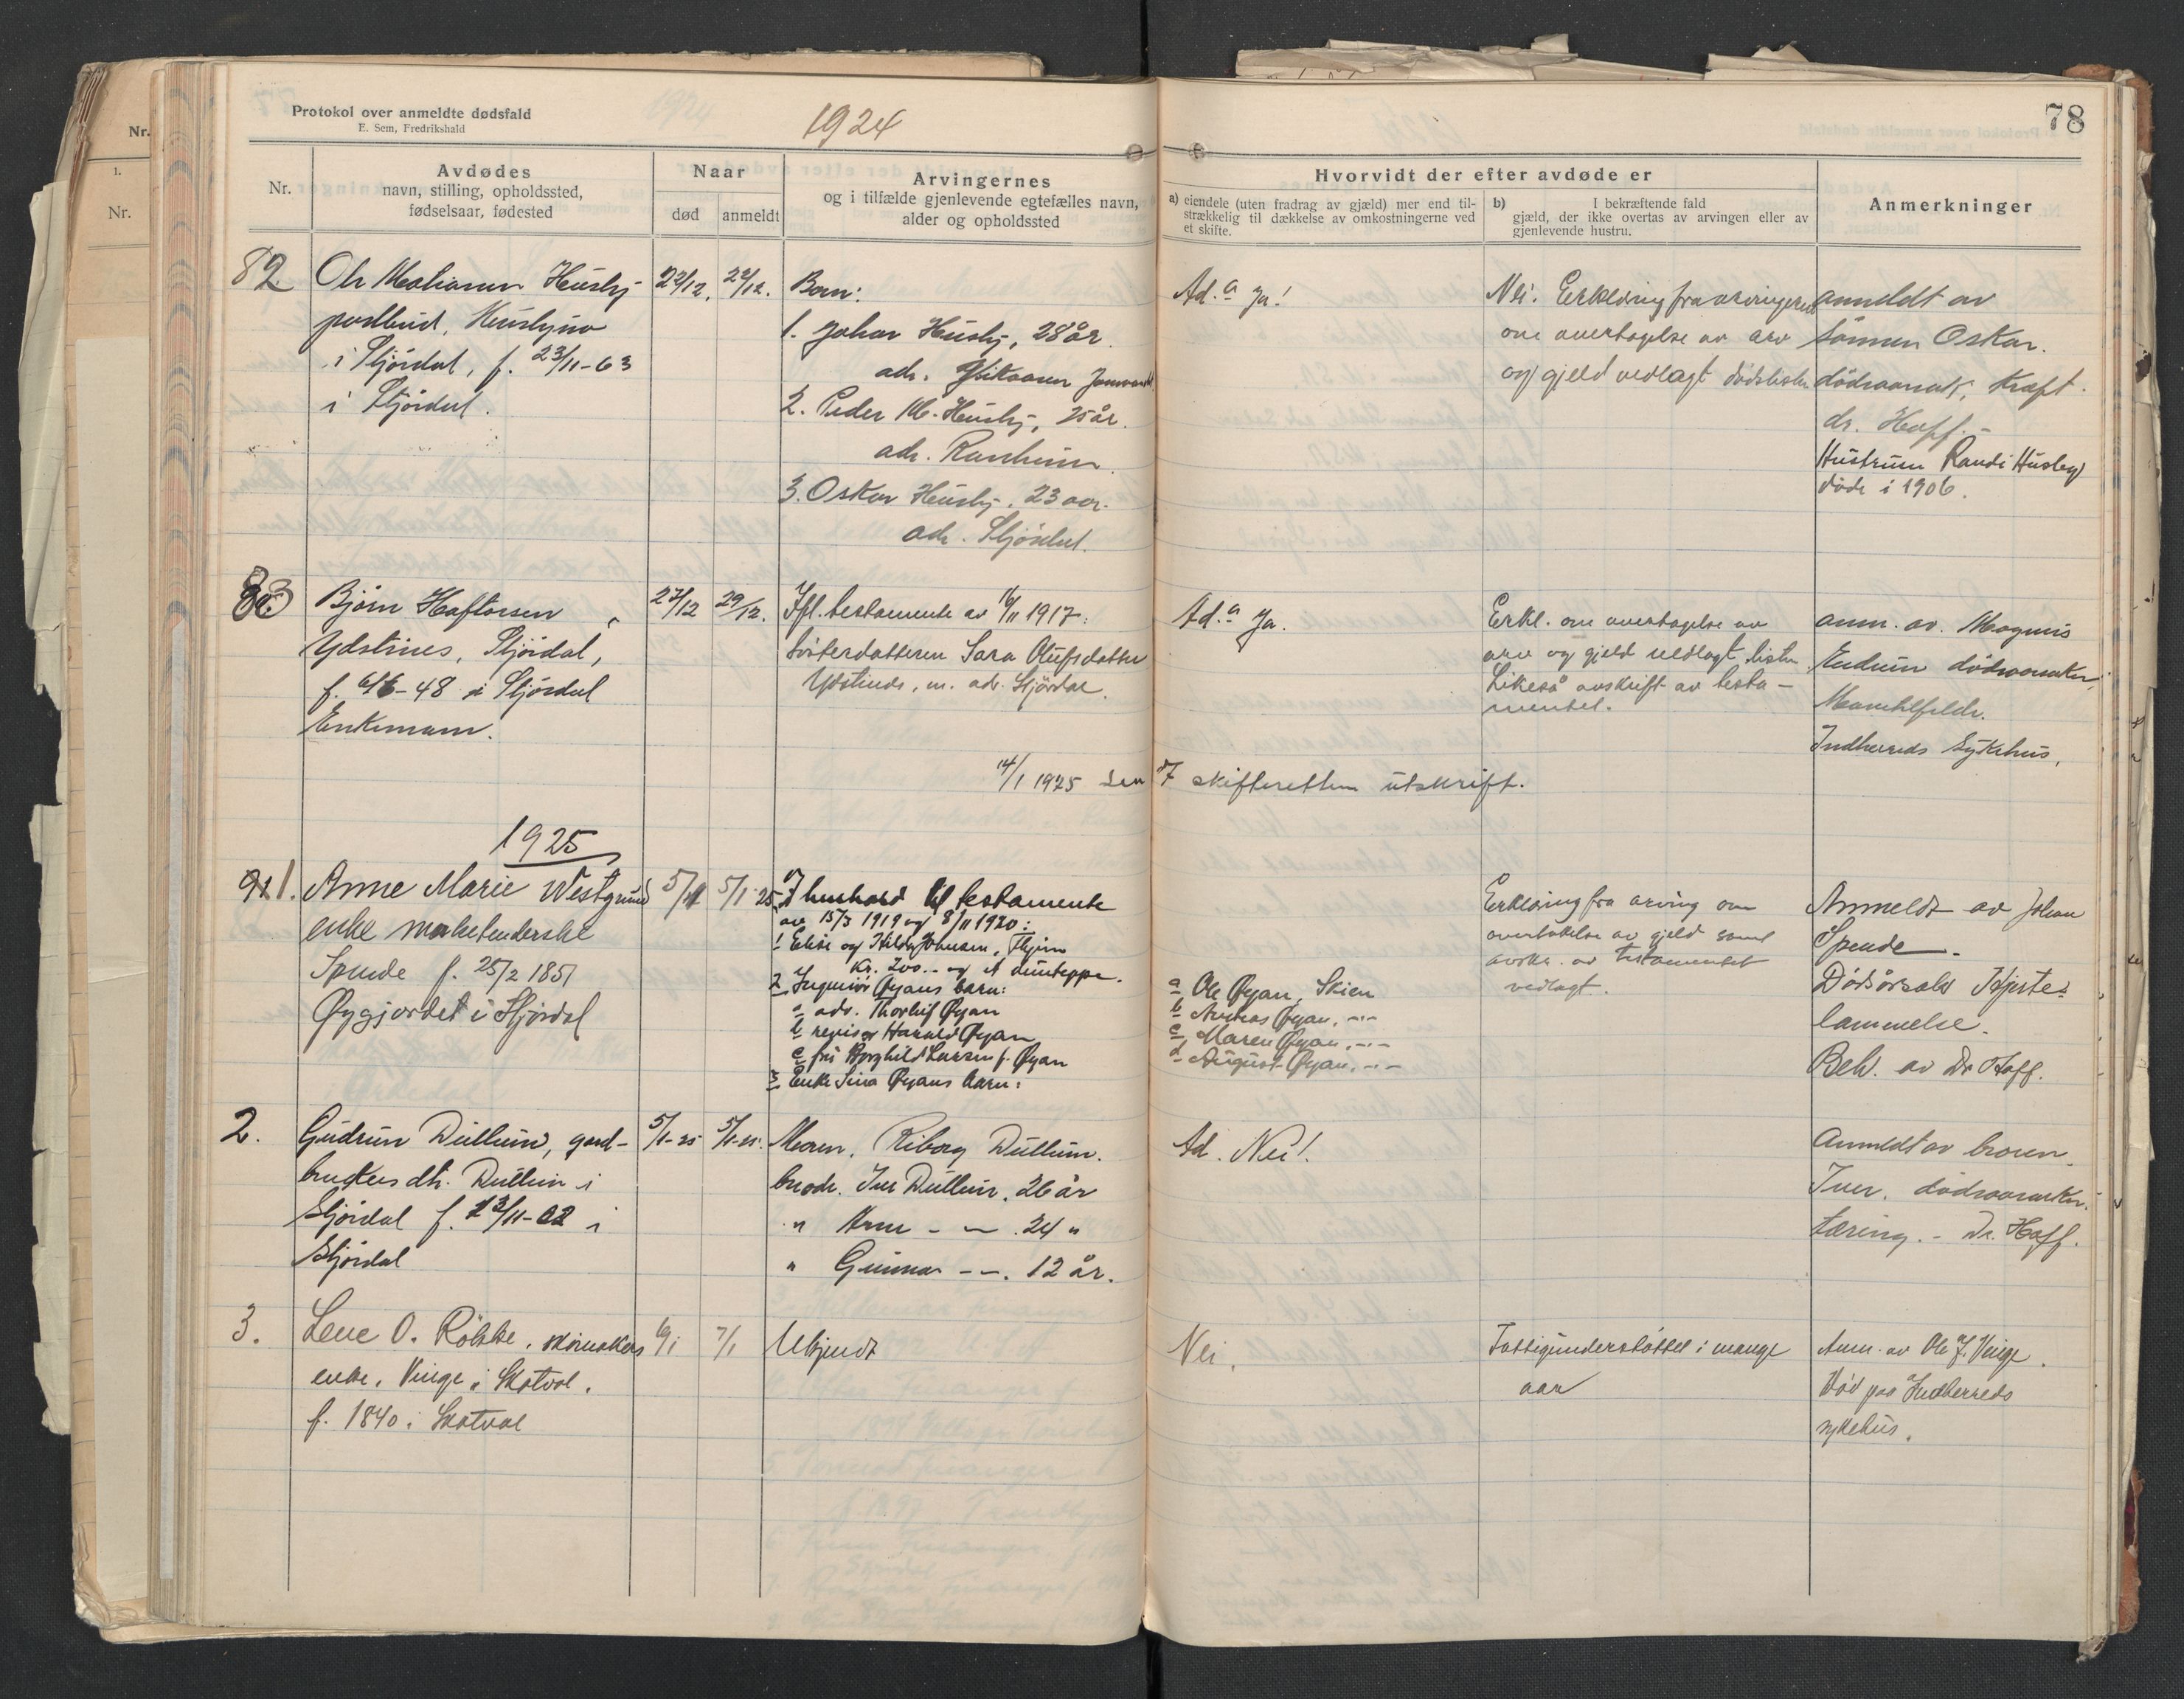 Protokol over anmeldte dødsfald
E. Sem, Fredrikshald
1924
78
Nr.
1.
Nr.
Nr.
Avdødes
navn, stilling, opholdssted,
fødselsaar, fødested
Naar
død
anmeldt
Arvingernes
og i tilfælde gjenlevende egtefælles navn,
alder og opholdssted
Hvorvidt der efter avdøde er
a) eiendele (uten fradrag av gjæld) mer end til-
strækkelig til dækkelse av omkostningerne ved
et skifte.
b) I bekræftende fald
gjæld, der ikke overtas av arvingen eller av
gjenlevende hustru.
Anmerkninger
82
Ole Husby
postbud, 
i Stjördal, f. 23/11-63
i Stjördal.
22/12. 22/12.
Barn:
1. Johan Husby, 28 år.
adr.
2. Peder M. Husby, 25 år.
adr. Ranheim.
3. Oskar Husby, 23 aar.
adr. Stjördal.
Ad. a Ja!
Nei. Erklæring fra arvingerne
om overtagelse av arv
og gjeld vedlagt dödslisten
anmeldt av
sönnen Oskar.
dödsaarsak, Kræft.
dr. Hoff.-
Hustruen Randi Husby
döde i 1906.
83
Björn Haftorsen,
Ydstines, Stjördal,
f. -48 i Stjördal
Enkemann.
27/12 29/12.
Ifl. testamente av 16/11 1917:
Sösterdatteren Sara Olufsdatter
Ystines, m. adr. Stjördal.
Ad. a Ja.
Erkl. om overtagelse av
arv og gjeld vedlagt listen
Likeså avskrift av testa-
mentet.
anm. av. Magnus
dödsaarsaken,
Indherreds Sykehus,
14/1 1925 sendt skifteretten utskrift.
1925
91 1.
Anne Marie Westgrund
enke marketenderske
Spende f. 25/2 1851
Øygjordet i Stjördal
5/1 5/1 25
I henhold til testamente
av 15/3 1919 og 8/11 1920:
1 Elise og Hilda Johnsen,
Kr. 200.- og et
2 Ingeniör Øyans barn:
a adv. Thorleif Øyan
b revisor Harald Øyan
c fru Borghild Larsen f. Øyan
3 Enke Sina Øyans barn:
a Ole Øyan, Skien
b Andreas Øyan, -"-
c Maren Øyan, -"-
d August Øyan, -"-
Erklæring fra arving om
overtakelse av gjeld samt
avskr. av testamentet
vedlagt.
Anmeldt av Johan
Spende.
Dödsårsak Hjerte-
lammelse.
Beh. av Dr Hoff.
2.
Gudrun Dullum, gard-
brukers dtr. Dullum i
Stjördal f. 23/11-02 i
Stjördal
5/1-25 5/1-25.
Moren, Riborg Dullum.
brodr. Iver Dullum, 26 år
" Arne - " - 24 "
" Gunnar - " -. 12 år.
Ad. Nei!
Anmeldt av broren
Iver. dödsaarsaken
tæring. - Dr. Hoff.
3.
Lene O. Rökke, skomakers
enke, Vinge i Skatval.
f. 1840 i Skatval
6/1 7/1
Ukjendt
Nei.
Fattigunderstöttet i mange
aar
Anm. av Ole J. Vinge.
Död paa Indherreds
sykehus.